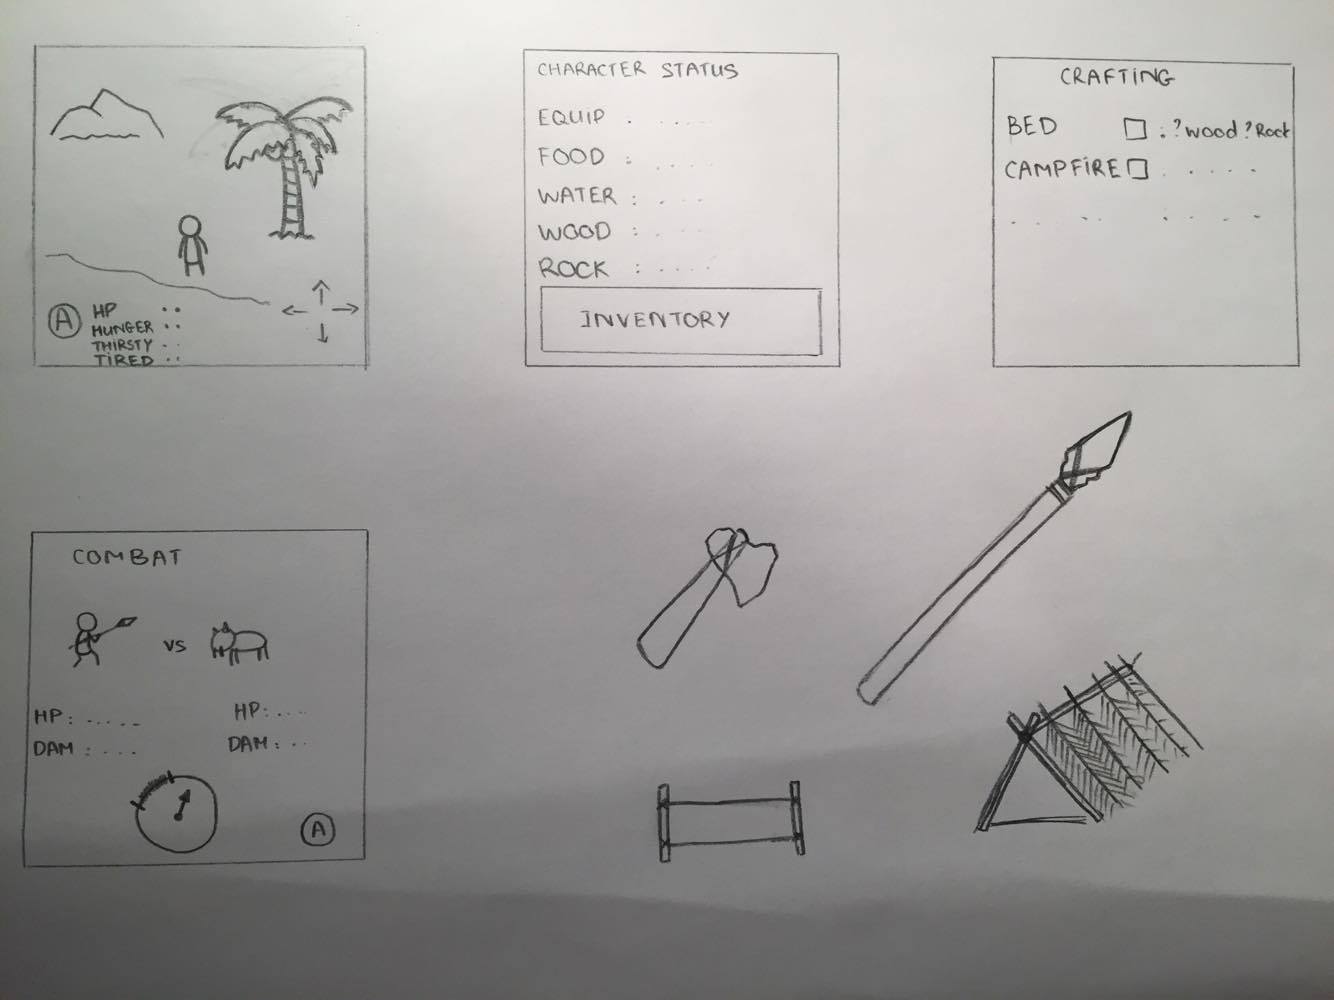 A
HP
HUNGER
THIRSTY
TIRED
CHARACTER STATUS
EQUIP :
FOOD :
WATER :
WOOD :
ROCK :
INVENTORY
CRAFTING
BED : ?wood ?Rock
CAMPFIRE
COMBAT
VS
HP: HP:
DAM : DAM :
A